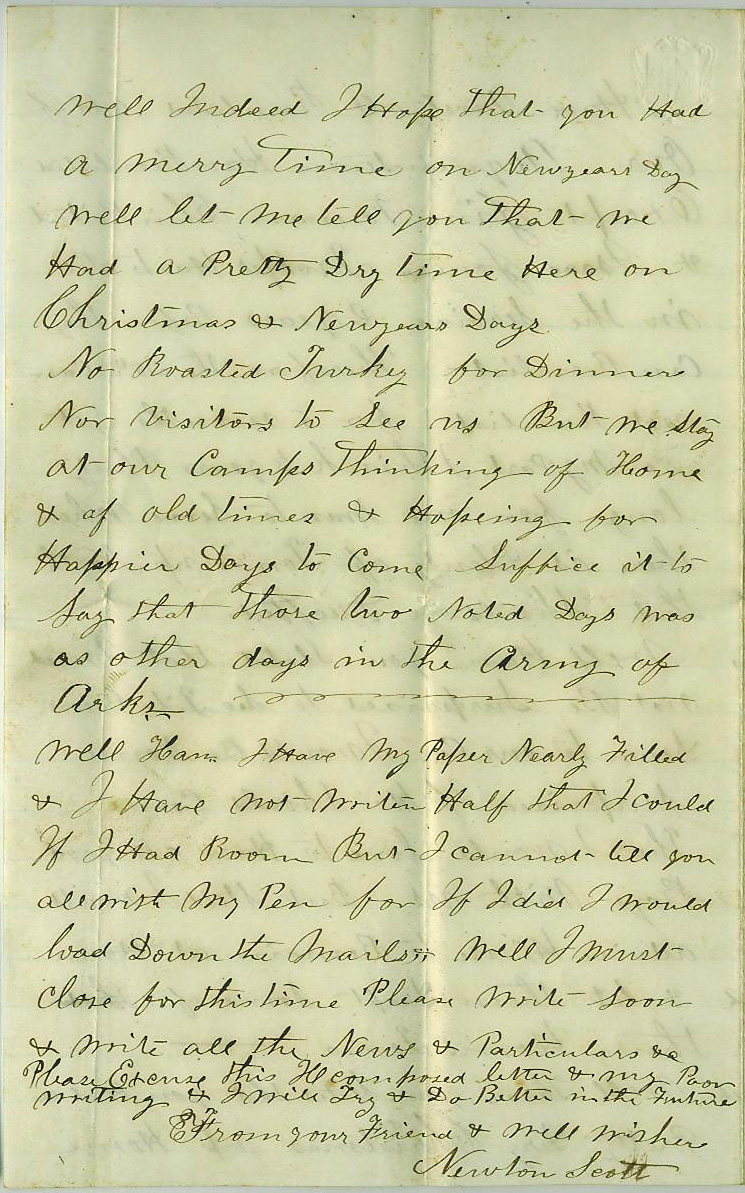 Well Indeed I Hope that you Had
a merry Time on Newyears Day
Well let me tell you that we
Had a Pretty Dry time Here on
Christmas & Newyears Days
No Roasted Turkey for Dinner
Nor visitors to See us But we stay
at our Camps thinking of Home
& of old times & Hopeing for
Happier Days to Come Suffice it to
Say that those two Noted Days was
as other days in the Army of
Arks.
Well Han. I Have My Paper Nearly Filled
& I Have not writen Half that I could
If I Had Room But I cannot tell you
all with My Pen for If I did I would
load Down the Mails Well I must
Close for this time Please write Soon
& write all the News & Particulars &c
Please Excuse this Ill composed letter & my Poor
writing & I will Try & Do Better in the Future
From your Friend & Well wisher
Newton Scott